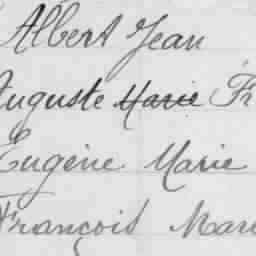 Albert Jean
Auguste Marie Fr
Eugène Marie
François Mari